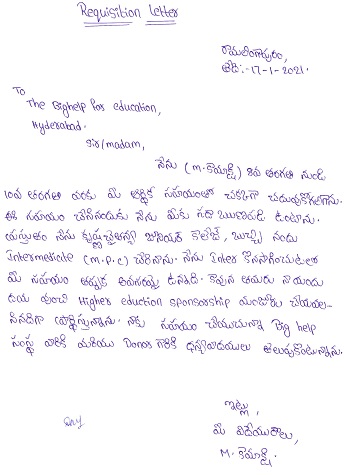 Requisition Letter
రామలింగాపురం,
తేది:-17-1-2021.
To
The Bighelp for education,
Hyderabad.
Sir/madam,
నేను (M. కామాక్షి) 8వ తరగతి నుండి
10వ తరగతి వరకు మీ ఆర్థిక సహాయంతో చక్కగా చదువుకోగలిగాను.
ఈ సహాయం చేసినందుకు నేను మీకు సదా ఋణపడి ఉంటాను.
ప్రస్తుతం నేను కృష్ణచైతన్య జూనియర్ కాలేజీ, బుచ్చి నందు
Intermediate (M.P.C) చేరినాను. నేను Inter కొనసాగించుటలో
మీ సహాయం ఆర్థిక అవసరమై ఉన్నది. కావున తమరు నాయందు
దయ ఉంచి Higher eduction sponsorship మంజూరు చేయవల-
సినదిగా ప్రార్థిస్తున్నాను. నాకు సహాయం చేయుచున్నా Big help
సంస్థ వారికి మరియు Donor గారికి ధన్యవాదములు తెలుపుకొంటున్నాను.
ఇట్లు,
మీ విధేయురాలు,
M. కామాక్షి.